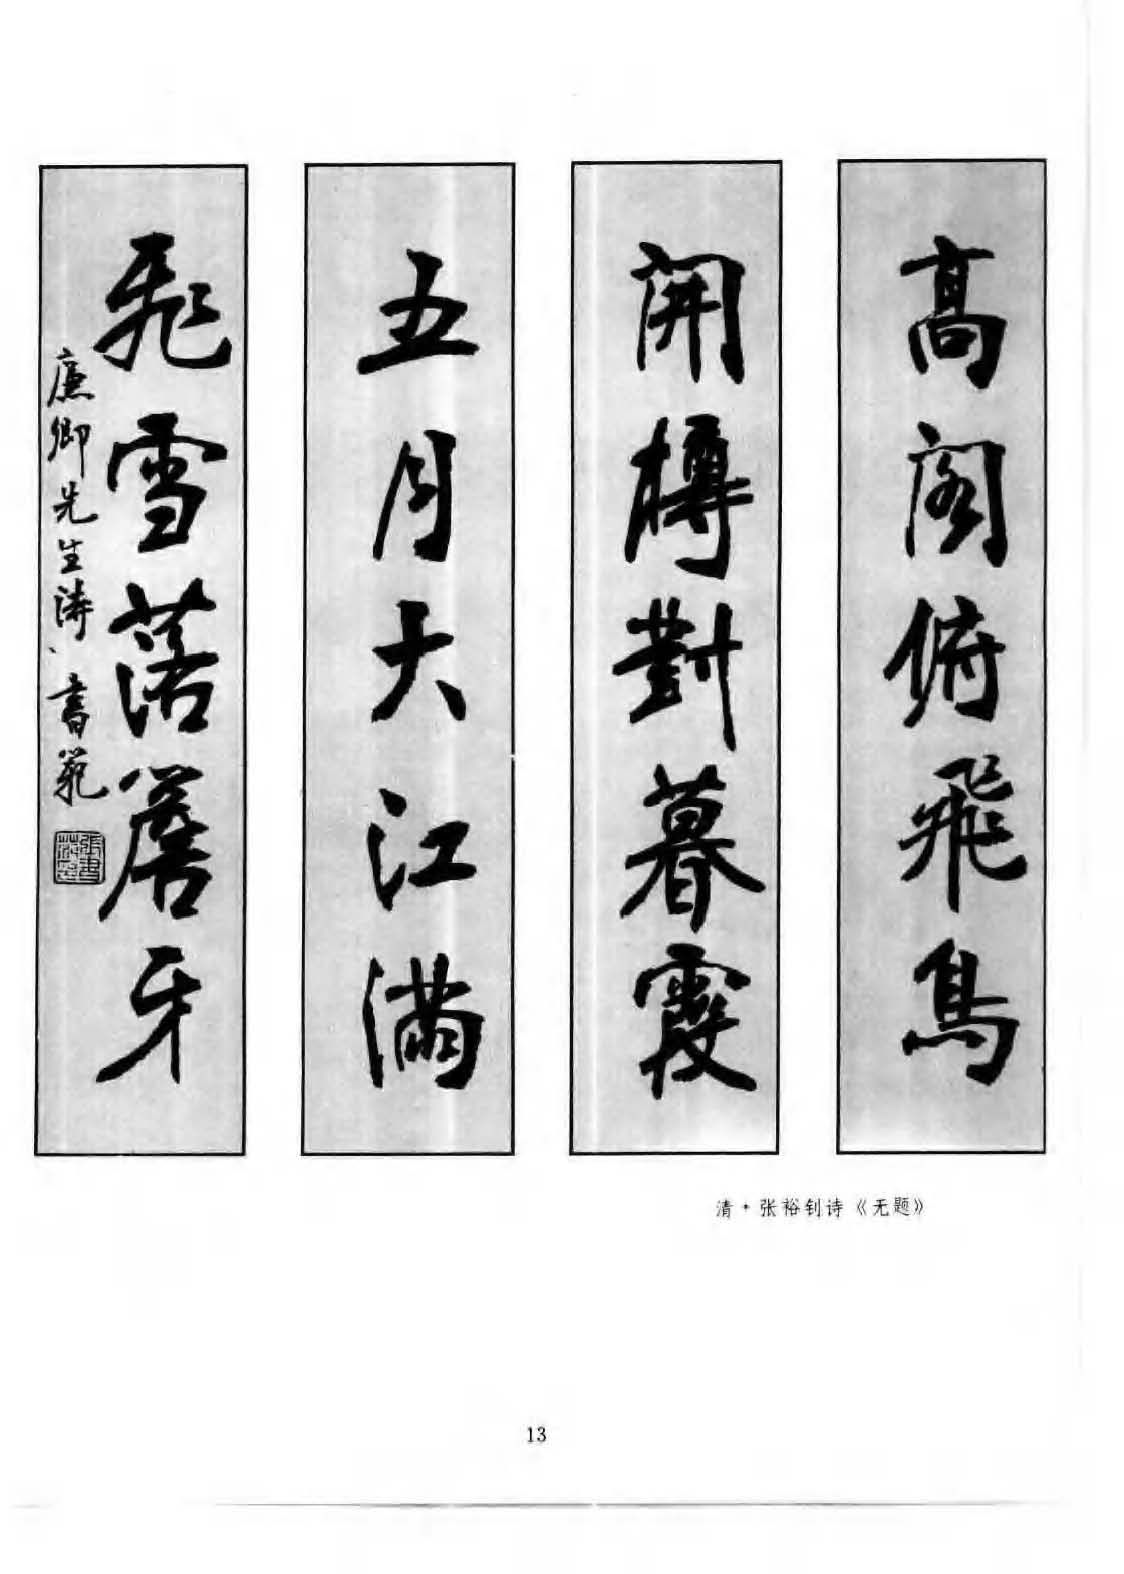 高阁俯飛鳥
開樽對暮霞
五月大江滿
飛雪落簷牙
廉卿先生诗、書範
張書範
清·张裕钊诗《无题》
13